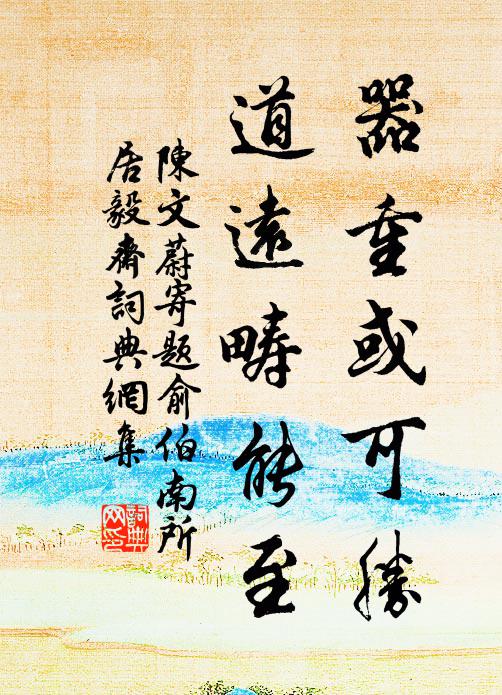 器重或可勝
道遠疇能至
陳文蔚寄題俞伯南所
居毅齋詞典網集